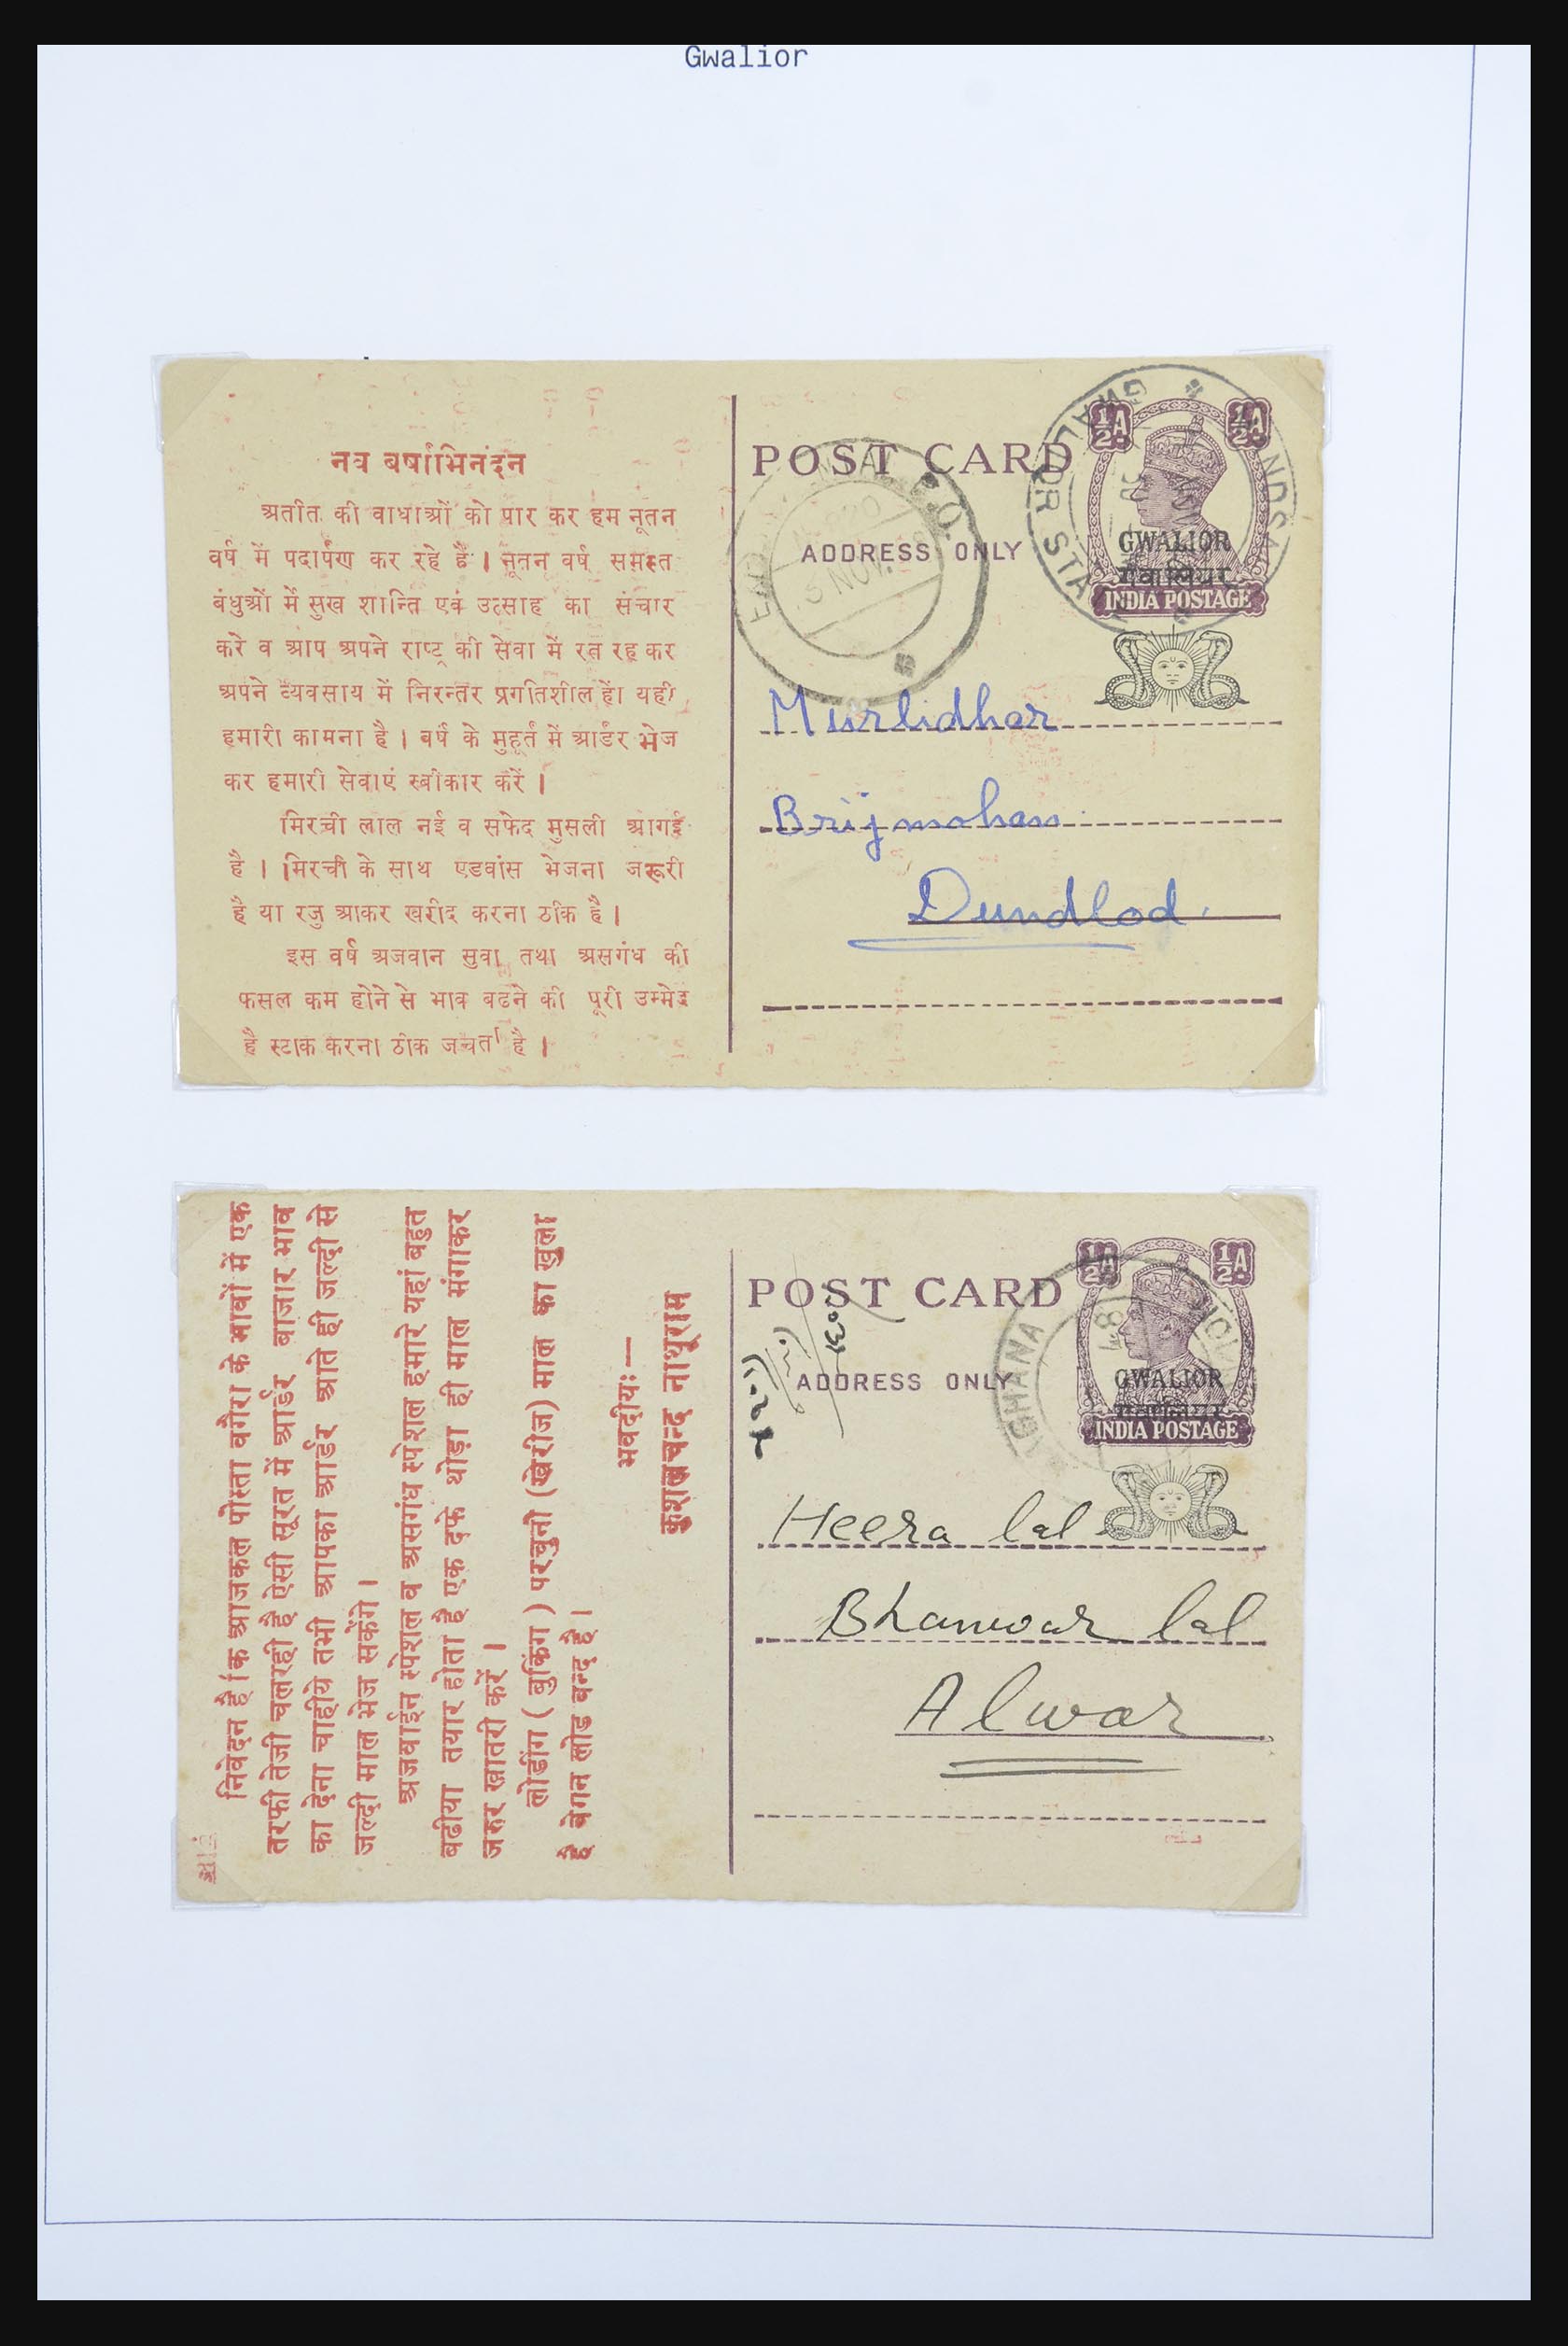 Gwalior
नव बर्षाभिनंदन
अतीत की वाधाओं को पार कर हम नूतन
वर्ष में पदार्पण कर रहे हैं । नूतन वर्ष समस्त
बंधुओं में सुख शान्ति एवं उत्साह का संचार
करे व आप अपने राष्ट्र की सेवा में रत रह कर
अपने व्यवसाय में निरन्तर प्रगतिशील हों। यही
हमारी कामना है । वर्ष के मुहूर्त में आर्डर भेज
कर हमारी सेवाएं स्वीकार करें ।
मिरची लाल नई व सफेद मुसली आगई
है । मिरची के साथ एडवांस भेजना जरूरी
है या रजु आकर खरीद करना ठीक है ।
इस वर्ष अजवान सुवा तथा असगंध की
फसल कम होने से भाव बढने की पूरी उम्मेद
है स्टाक करना ठीक जचता है ।
POST CARD
ADDRESS ONLY
½A ½A
GWALIOR
गवालियर
INDIA POSTAGE
GWALIOR STA
3 NOV.
Murlidhar
Brijmohan
Dundlod.
निवेदन है कि आजकल पोस्ता वगैरा के भावों में एक
तरफी तेजी चलरही है ऐसी सूरत में आर्डर बाजार भाव
का देना चाहीये तभी आपका आर्डर आते ही जल्दी से
जल्दी माल भेज सकेंगे ।
अजवाईन स्पेशल व असगंध स्पेशल हमारे यहां बहुत
बढीया तयार होता है एक दफे थोड़ा ही माल मंगाकर
जरुर खातरी करें ।
लोडींग ( बुकिंग ) परचुनी (खेरीज) माल का खुला
है वेगन लोड बन्द है।
भवदीयः—
कुशलचन्द नाथूराम
POST CARD
ADDRESS ONLY
½A ½A
GWALIOR
INDIA POSTAGE
Heera lal
Bhanwar lal
Alwar